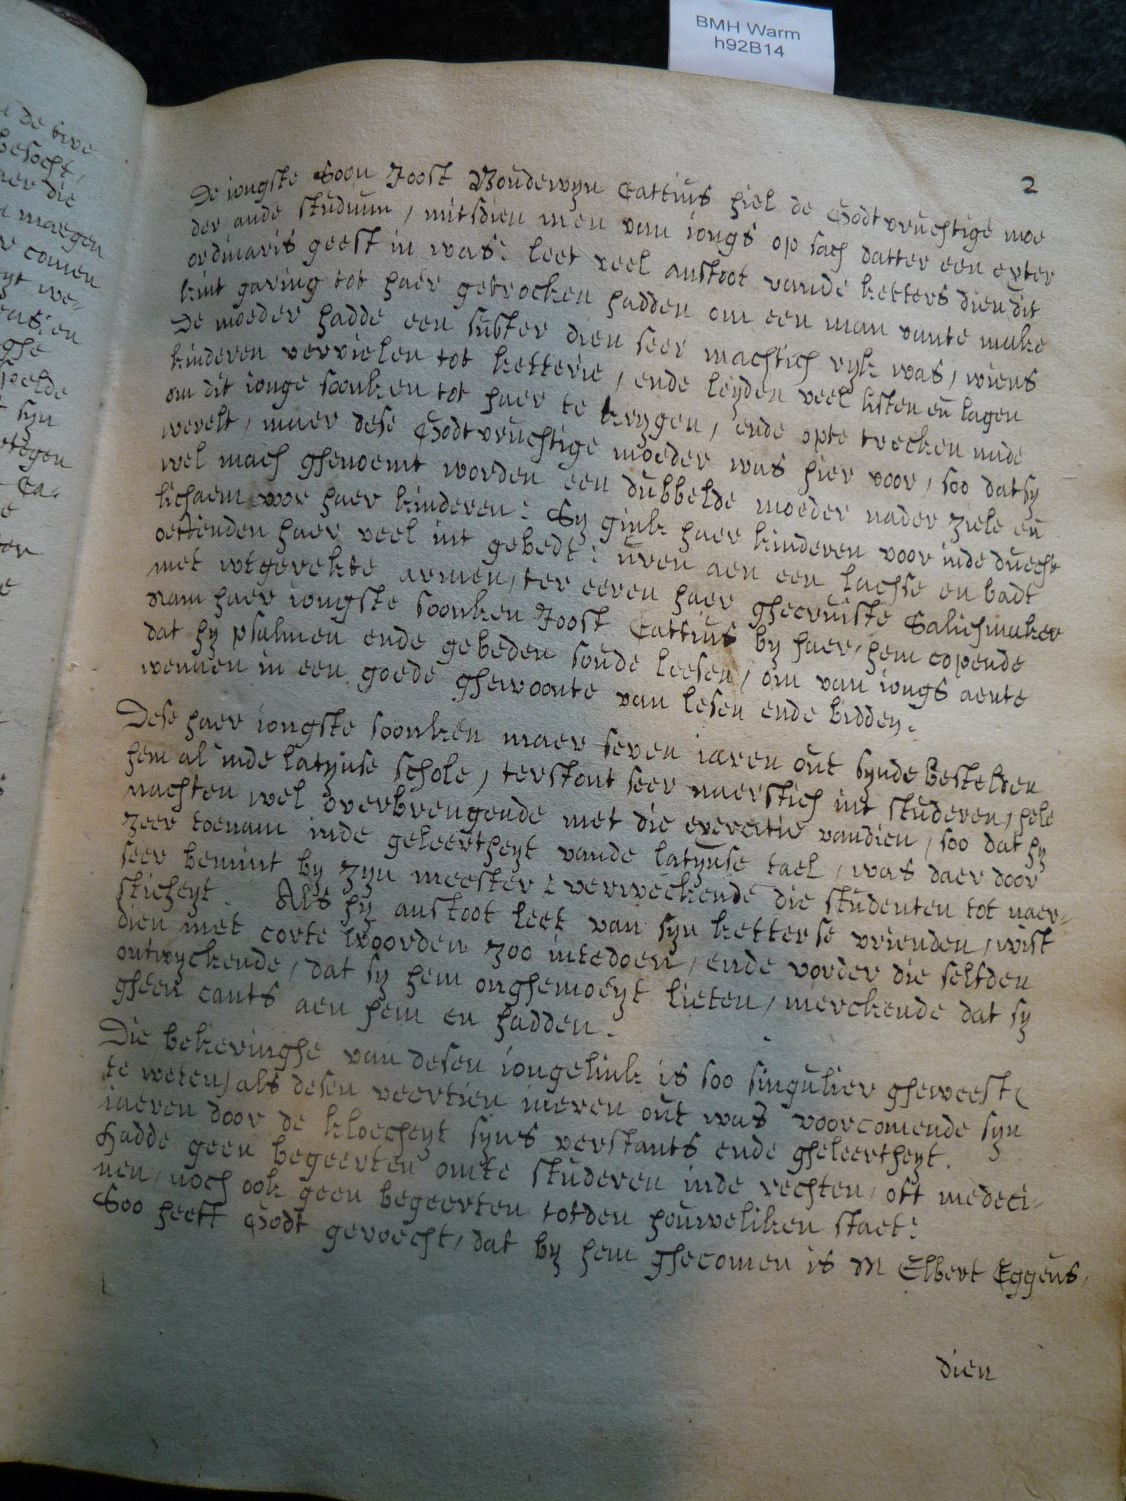 BMH Warm
h92B14
2
De iongste Soon Joost Boudewyn Cattius hiel de Godtvruchtige moe
der ande studium, mitsdien men van iongs op sach datter een exter
ordinaris geest in was: leet veel anstoot vande ketters dien dit
kint garing tot haer getrocken hadden om een man vante make
De moeder hadde een suster dien seer machtich ryk was, wiens
kinderen vervielen tot ketterie, ende leyden veel listen en lagen
om dit ionge soonken tot haer te krygen, ende opte trecken inde
werelt, maer dese Godtvruchtige moeder was hier voor, soo dat sy
wel mach ghenoemt worden een dubbelde moeder nader ziele en
lichaem voor haer kinderen: Sy gink haer kinderen voor inde duecht
oeffenden haer veel int gebedt: uren aen een lachse en badt
met wtgerekte armen, ter eeren haer ghecruiste Salichmaker
nam haer iongste soonken Joost Cattius by haer, hem copende
dat hy psalmen ende gebeden soude leesen, om van iongs aente
wennen in een goede ghewoonte van lesen ende bidden.
Dese haer iongste soonken maer seven iaren out synde bestelden
hem al inde latynse schole, terstont seer naerstich int studeren, hele
nachten wel overbrengende met die exercitie vandien, soo dat hy
zeer toenam inde geleertheyt vande latynse tael, was daer door
seer bemint by zyn meester: verweckende die studenten tot naer-
sticheyt. Als hy anstoot leet van syn ketterse vrienden, wist
dien met corte woorden zoo intedoen, ende vorder die selfden
ontwyckende, dat sy hem onghemoeyt lieten, merckende dat sy
gheen cants aen hem en hadden.
Die bekeringhe van desen iongelink is soo singulier gheweest (
te weten) als desen veertien iaeren out was voorcomende syn
iaeren door de kloecheyt syns verstants ende gheleertheyt.
Hadde geen begeerten omte studeren inde rechten, oft medeci-
nen, noch ook geen begeerten totden houweliken staet:
Soo heeft Godt gevoecht, dat by hem ghecomen is M Elbert Eggeus,
dien